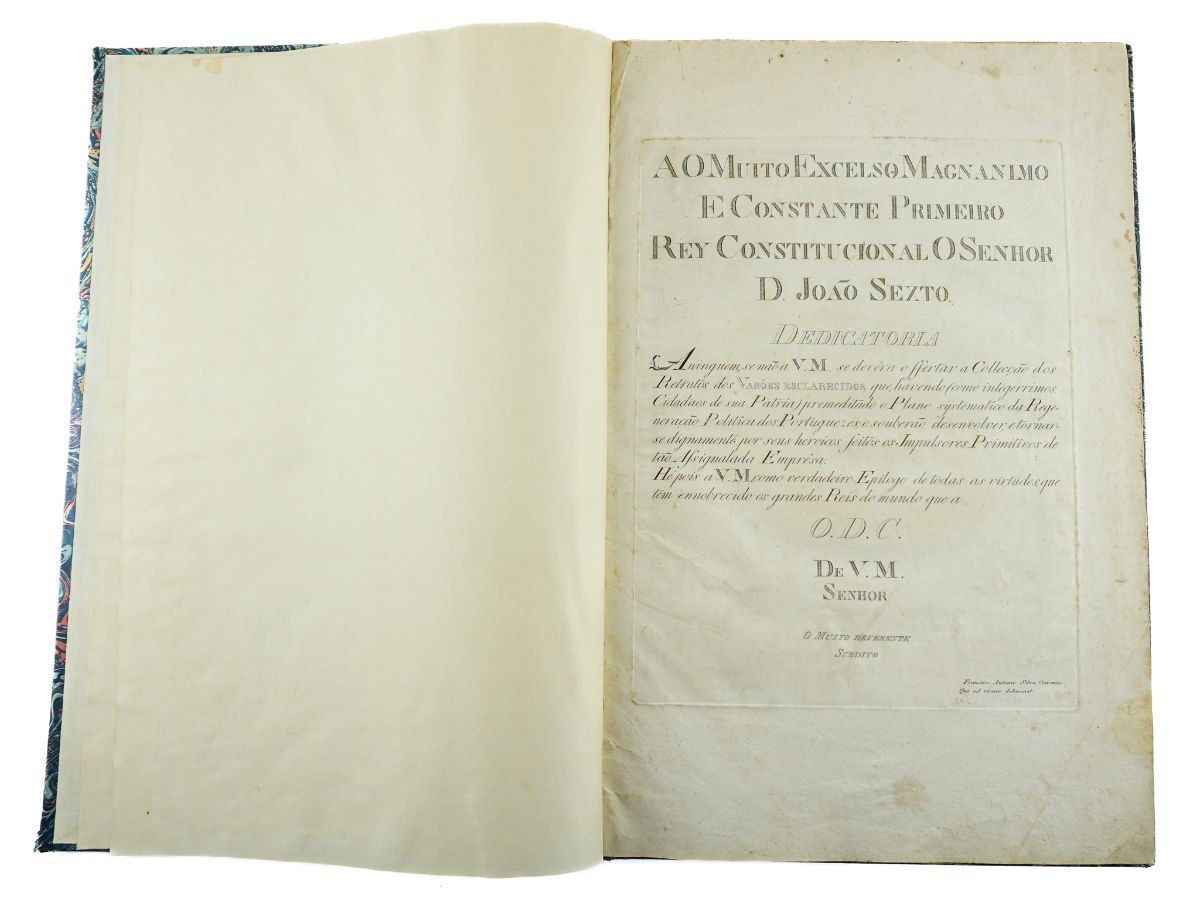 AO MUITO EXCELSO, MAGNANIMO
E CONSTANTE PRIMEIRO
REY CONSTITUCIONAL O SENHOR
D. JOAÕ SEXTO.
DEDICATORIA
A ninguem, se não a V.M. se devêra offertar a Collecção dos
Retratos dos VARÕES ESCLARECIDOS, que, havendo (como integerrimos
Cidadaos de sua Patria) premeditado o Plano systematico da Rege-
neração Politica dos Portuguezes, o souberão desenvolver, e tornar-
se dignamente por seus heroicos feitos os Impulsores Primitivos de
tão Assignalada Emprêsa.
Hé pois a V.M. como verdadeiro Epilogo de todas as virtudes, que
tem ennobrecido os grandes Reis do mundo que a
O. D. C.
DE V. M.
SENHOR
O MUITO REVERENTE
SUBDITO
Francisco Antonio Silva
Qui ad vivum delineavit